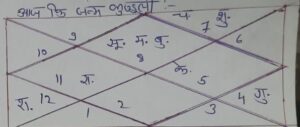 आप कि जन्म कुण्डली :-
9 च. 7 शु.
10 सू. म. बु. 6
8 के.
11 रा. 5
श. 12 2 4 गु.
1 3